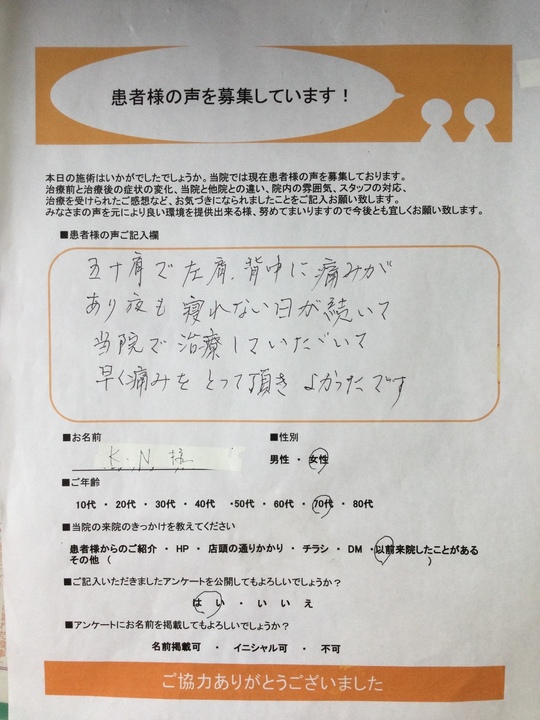 患者様の声を募集しています！
本日の施術はいかがでしたでしょうか。当院では現在患者様の声を募集しております。
治療前と治療後の症状の変化、当院と他院との違い、院内の雰囲気、スタッフの対応、
治療を受けられたご感想など、お気づきになられましたことをご記入お願い致します。
みなさまの声を元により良い環境を提供出来る様、努めてまいりますので今後とも宜しくお願い致します。
■患者様の声ご記入欄
五十肩で左肩、背中に痛みが
あり夜も寝れない日が続いて
当院で治療していただいて
早く痛みをとって頂きよかったです
■お名前 ■性別
K.N 様 男性 ・ 女性
■ご年齢
10代 ・ 20代 ・ 30代 ・ 40代 ・50代 ・ 60代 ・ 70代 ・ 80代
■当院の来院のきっかけを教えてください
患者様からのご紹介 ・ HP ・ 店頭の通りかかり ・ チラシ ・ DM ・ 以前来院したことがある
その他（ ）
■ご記入いただきましたアンケートを公開してもよろしいでしょうか？
は い ・ い い え
■アンケートにお名前を掲載してもよろしいでしょうか？
名前掲載可 ・ イニシャル可 ・ 不可
ご協力ありがとうございました